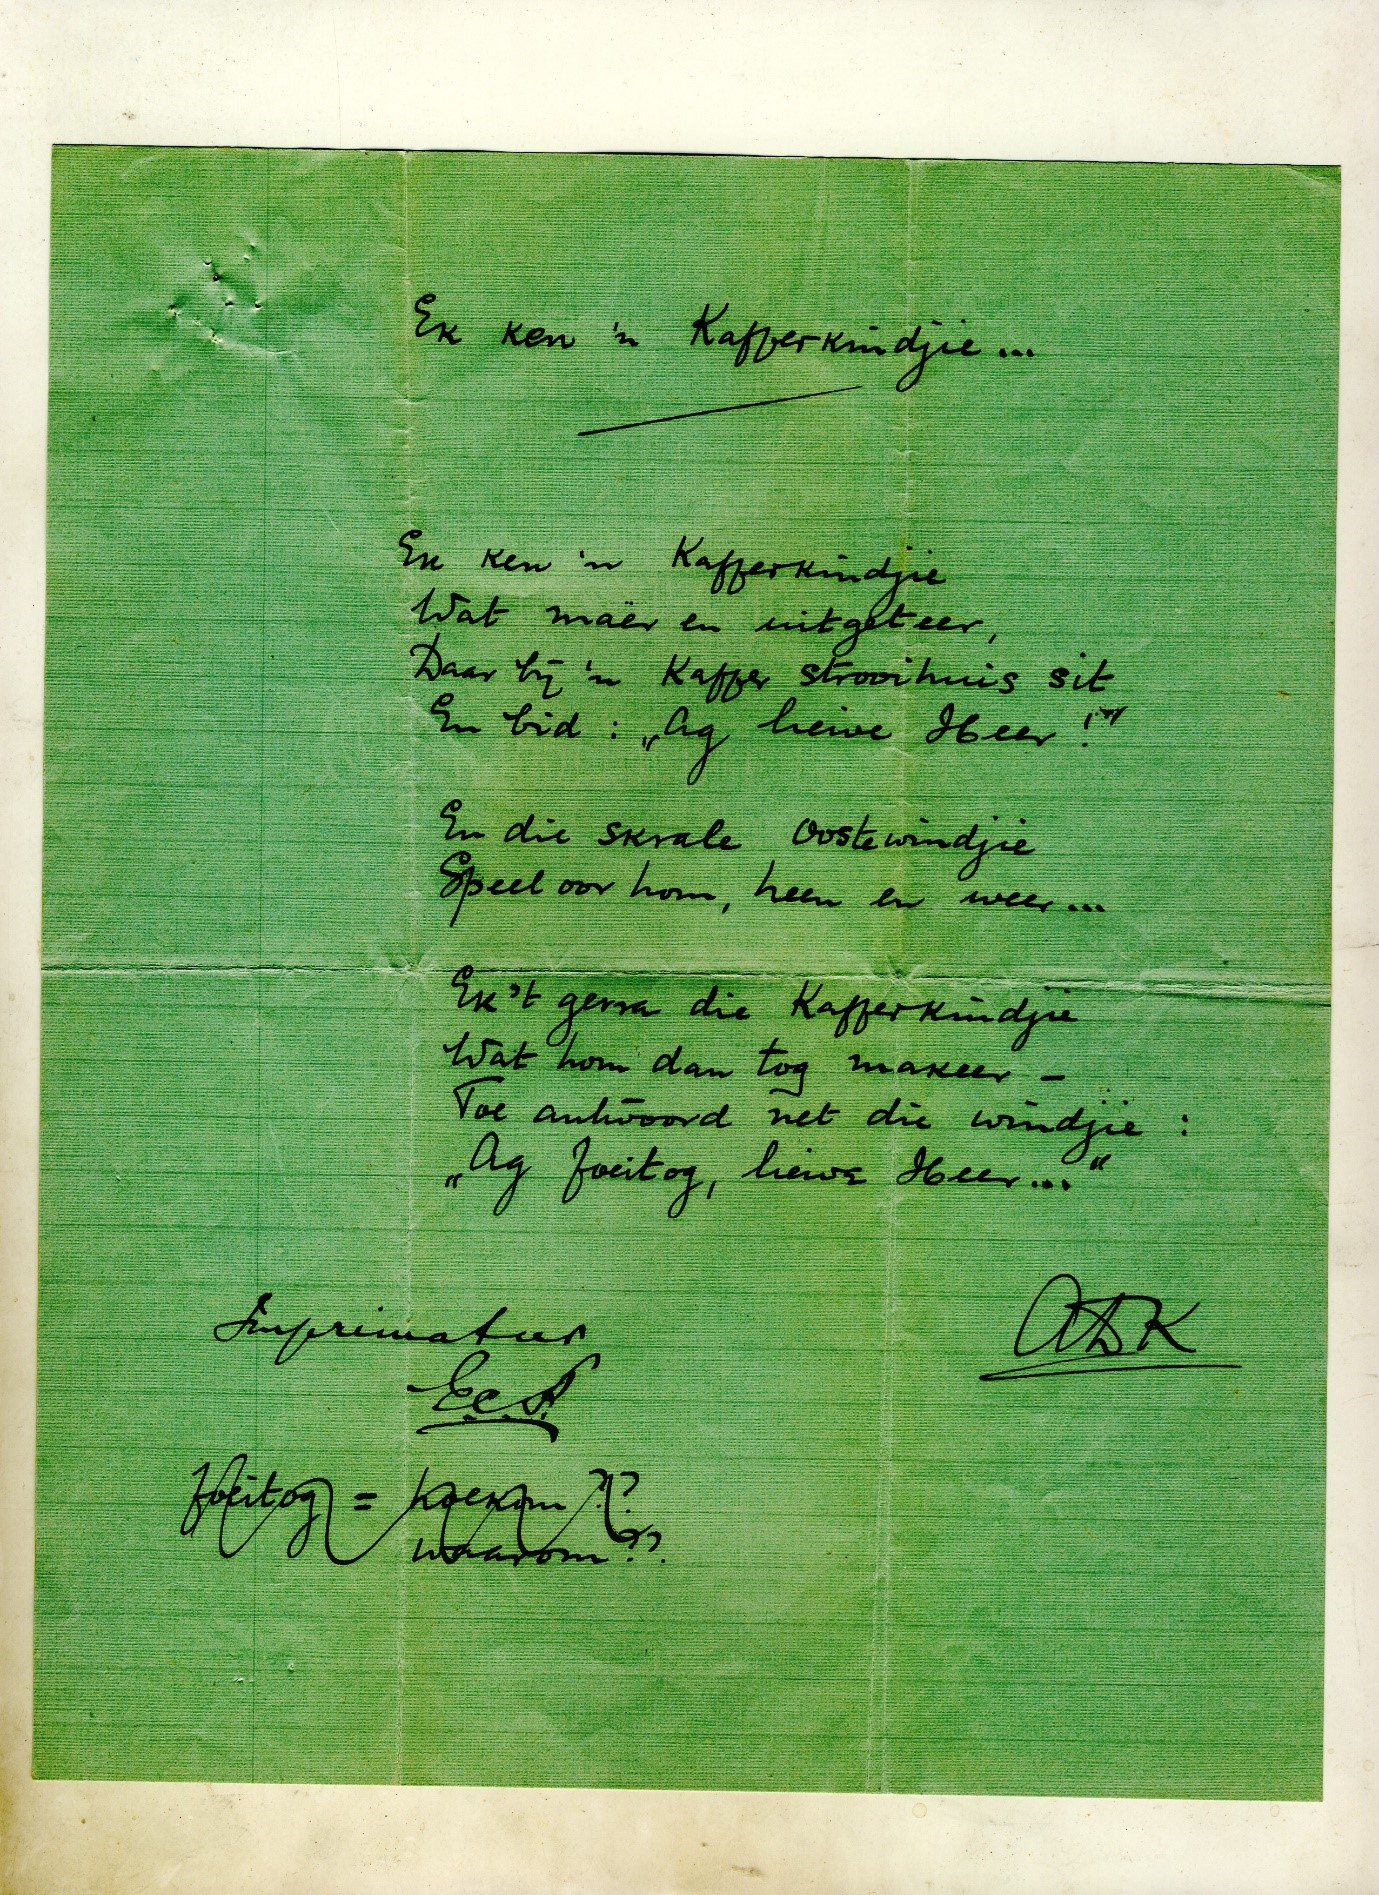 Ek ken 'n Kafferkindjie...
Ek ken 'n Kafferkindjie
Wat maër en uitgeteer,
Daar bij 'n Kaffer strooihuis sit
En bid: „Ag liewe Heer!"
En die skrale Oostewindjie
Speel oor hom, heen en weer...
Ek't gevra die Kafferkindjie
Wat hom dan tog makeer –
Toe antwoord net die windjie:
„Ag foeitog, liewe Heer..."
Imprimatur
ADK
foeitog = hoekom??
waarom??